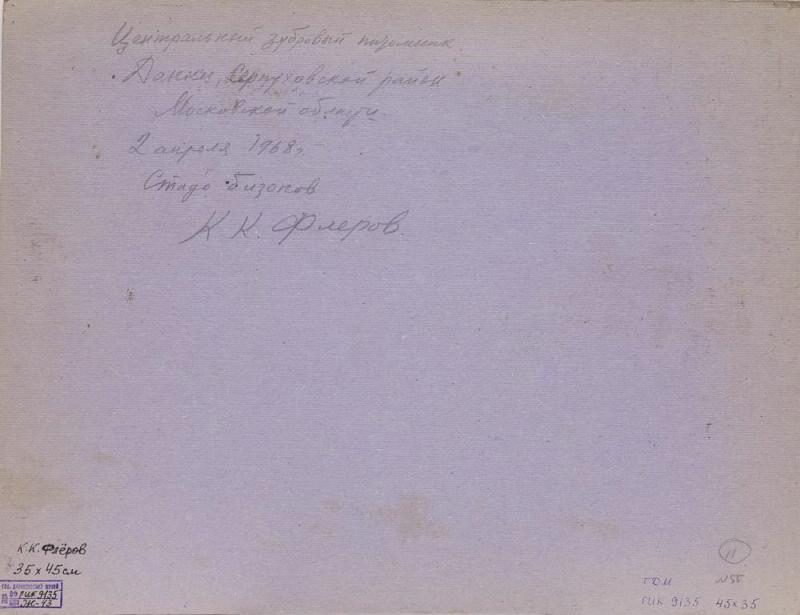 Центральный зубровый питомник
Данки, Серпуховской район
Московской области
2 апреля 1968г.
Стадо бизонов
К К. Флеров.
11
К.К. Флёров
35 х 45 см
ГОС. ДАРВИНОВСКИЙ МУЗЕЙ
ГИК 9135
ЖК-43
ГДМ N55
ГИК 9135 45х35